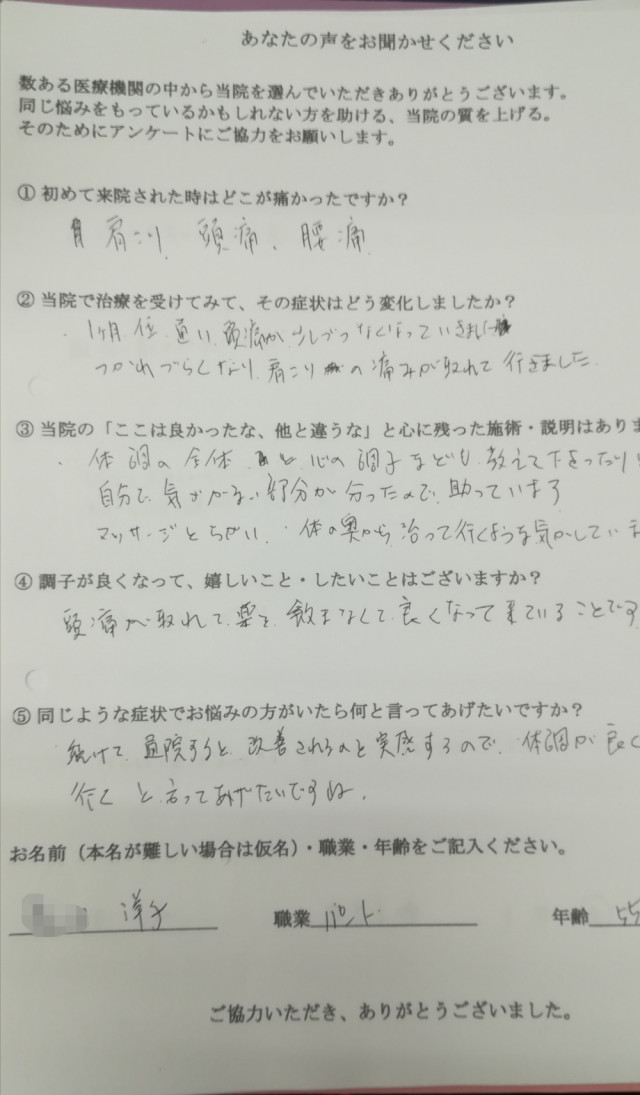 あなたの声をお聞かせください
数ある医療機関の中から当院を選んでいただきありがとうございます。
同じ悩みをもっているかもしれない方を助ける、当院の質を上げる。
そのためにアンケートにご協力をお願いします。
① 初めて来院された時はどこが痛かったですか？
肩こり、頭痛、腰痛
② 当院で治療を受けてみて、その症状はどう変化しましたか？
・1ヶ月位通い、頭痛が少しづつなくなっていきました
つかれづらくなり、肩こりの痛みが取れて行きました。
③ 当院の「ここは良かったな、他と違うな」と心に残った施術・説明はありま
・体調の全体 心の調子なども教えて下さったり
自分で気がつかない部分が分ったので、助っています
マッサージとちがい、体の奥から治って行くような気がしていま
④ 調子が良くなって、嬉しいこと・したいことはございますか？
頭痛が取れて、薬を飲まなくて良くなって来ていることです
⑤ 同じような症状でお悩みの方がいたら何と言ってあげたいですか？
続けて通院すると改善されると実感するので、体調が良く
行くと言ってあげたいですね。
お名前（本名が難しい場合は仮名）・職業・年齢をご記入ください。
洋子 職業 パート 年齢 55
ご協力いただき、ありがとうございました。